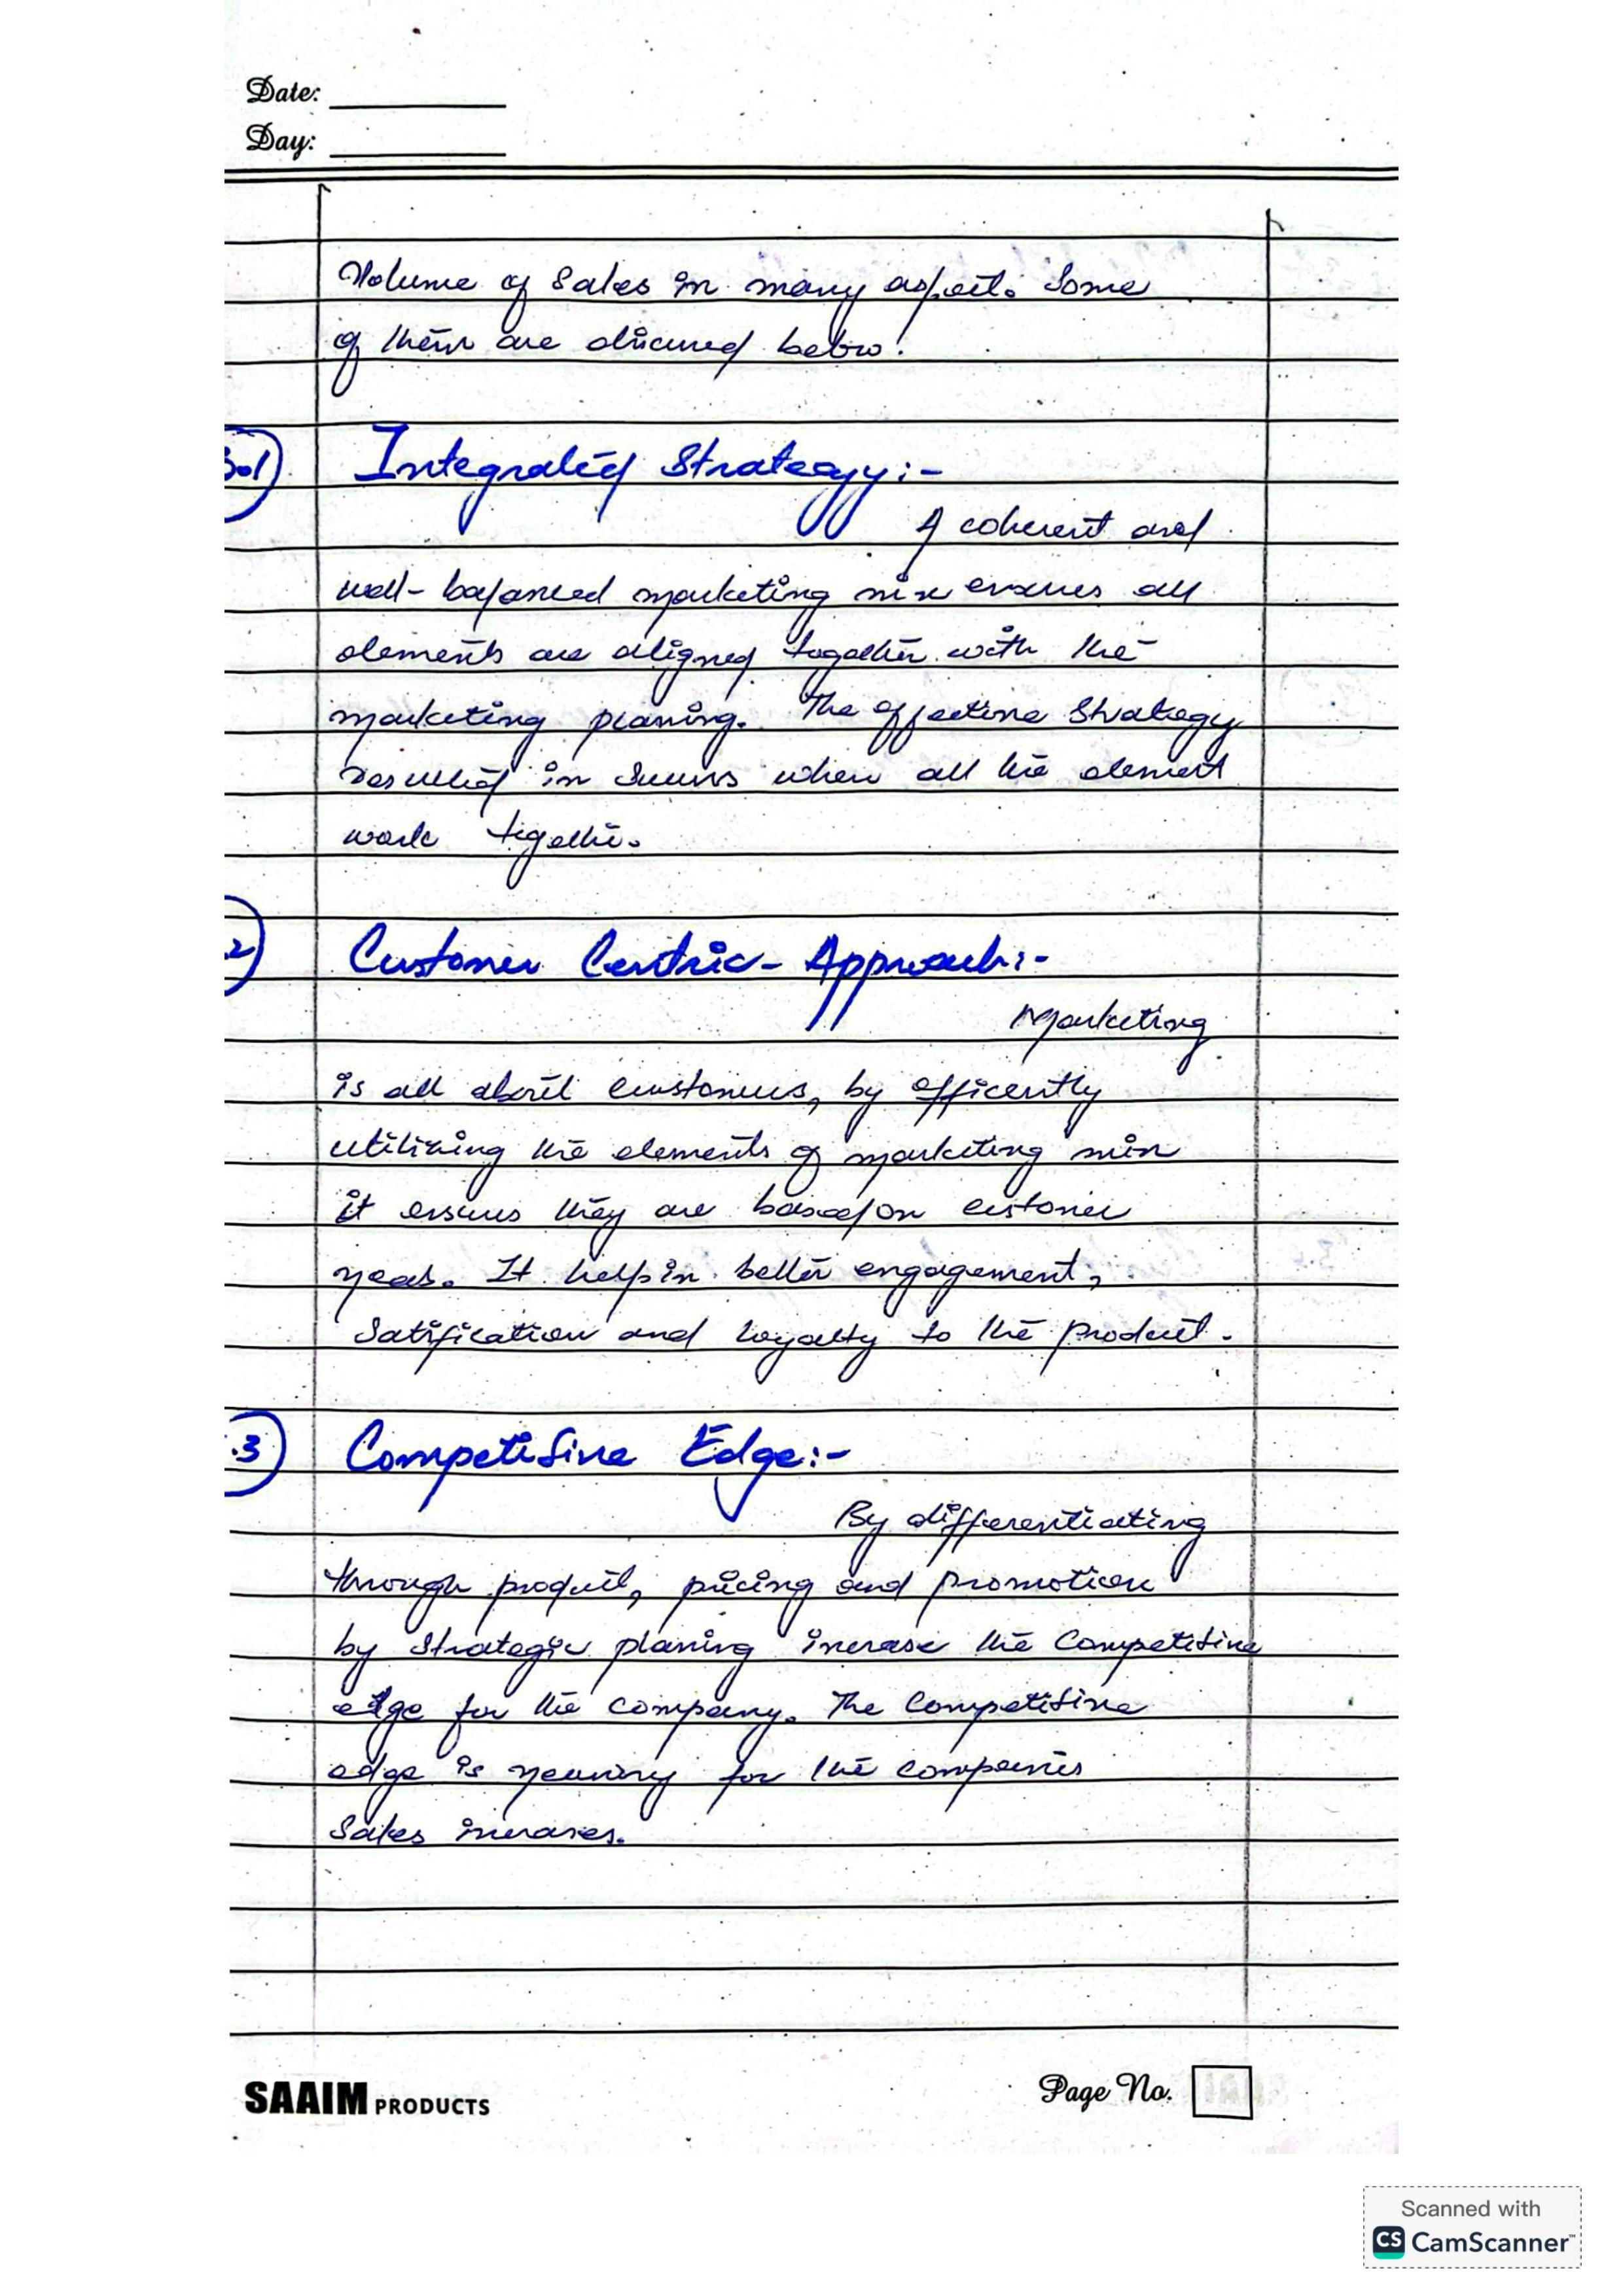 Date:
Day:
Volume of Sales in many aspect. Some
of them are discussed below.
3.1) Integrated Strategy:-
A coherent and
well-balanced marketing mix ensures all
elements are aligned together with the
marketing planing. The effective Strategy
resulted in Success when all the element
work together.
.2) Customer Centric- Approach:-
Marketing
is all about customers, by efficently
utilizing the elements of marketing mix
it ensures they are based on customer
needs. It help in better engagement,
Satification and loyalty to the product.
.3) Competitive Edge:-
By differentiating
through product, pricing and promotion
by Strategic planing increase the Competitive
edge for the company. The Competitive
edge is necessary for the companies
Sales increases.
SAAIM PRODUCTS
Page No.
Scanned with
CS CamScanner